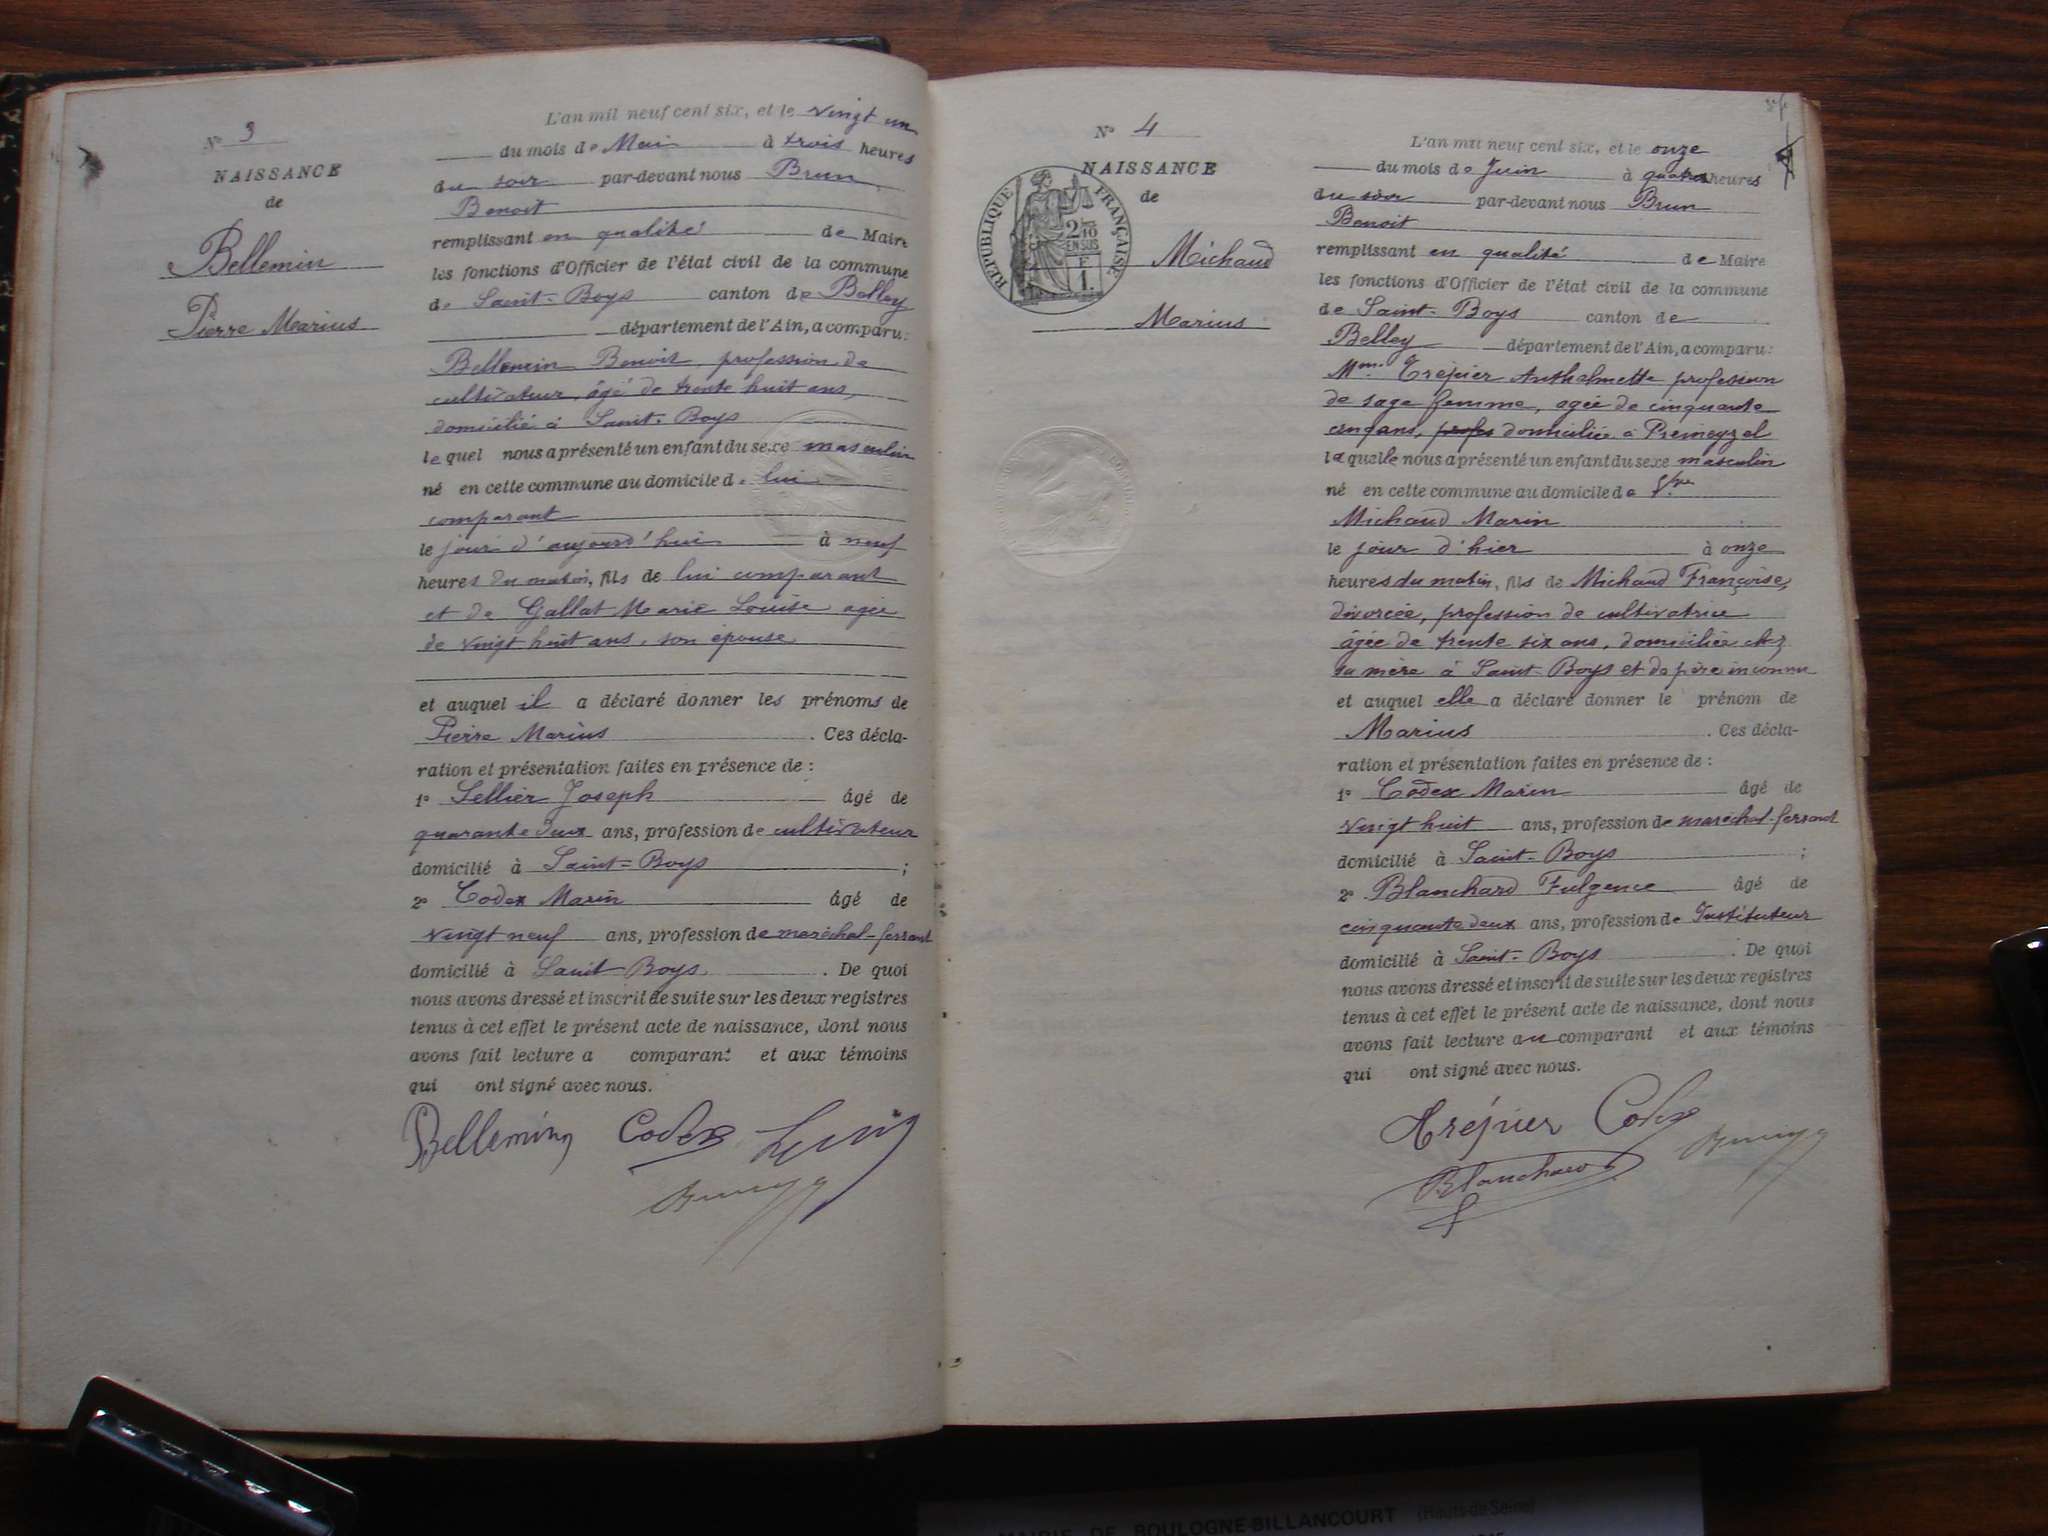 N° 3
NAISSANCE
de
Bellemin
Pierre Marius
L'an mil neuf cent six, et le vingt un
du mois de Mai à trois heures
du soir par-devant nous Brun
Benoit
remplissant en qualité de Maire
les fonctions d'Officier de l'état civil de la commune
de Saint-Boys canton de Belley
département de l'Ain, a comparu:
Bellemin Benoit profession de
cultivateur, âgé de trente huit ans,
domicilié à Saint-Boys
lequel nous a présenté un enfant du sexe masculin
né en cette commune au domicile de lui
comparant
le jour d'aujourd'hui à neuf
heures du matin, fils de lui comparant
et de Gallat Marie Louise agée
de vingt huit ans, son épouse
et auquel il a déclaré donner les prénoms de
Pierre Marius. Ces décla-
ration et présentation faites en présence de :
1° Sellier Joseph âgé de
quarante deux ans, profession de cultivateur
domicilié à Saint=Boys ;
2° Codex Marin âgé de
vingt neuf ans, profession de maréchal-ferrant
domicilié à Saint Boys. De quoi
nous avons dressé et inscrit de suite sur les deux registres
tenus à cet effet le présent acte de naissance, dont nous
avons fait lecture a comparant et aux témoins
qui ont signé avec nous.
Bellemin Codex
N° 4
NAISSANCE
de
RÉPUBLIQUE FRANÇAISE
2/10
EN SUS
F
1.
Michaud
Marius
L'an mil neuf cent six, et le onze
du mois de Juin à quatre heures
du soir par-devant nous Brun
Benoit
remplissant en qualité de Maire
les fonctions d'Officier de l'état civil de la commune
de Saint-Boys canton de
Belley département de l'Ain, a comparu:
Mme Trépier Anthelmette profession
de sage femme, agée de cinquante
cinq ans, profes domiciliée à Premeyzel
laquelle nous a présenté un enfant du sexe masculin
né en cette commune au domicile de
Michaud Marin
le jour d'hier à onze
heures du matin, fils de Michaud Françoise,
divorcée, profession de cultivatrice
âgée de trente six ans, domiciliée chez
sa mère à Saint-Boys et de père inconnu
et auquel elle a déclaré donner le prénom de
Marius. Ces décla-
ration et présentation faites en présence de :
1° Codex Marin âgé de
vingt huit ans, profession de maréchal-ferrant
domicilié à Saint-Boys ;
2° Blanchard Fulgence âgé de
cinquante deux ans, profession de Instituteur
domicilié à Saint-Boys. De quoi
nous avons dressé et inscrit de suite sur les deux registres
tenus à cet effet le présent acte de naissance, dont nous
avons fait lecture au comparant et aux témoins
qui ont signé avec nous.
Trépier Codex
Blanchard
MAIRIE DE BOULOGNE-BILLANCOURT (Hauts-de-Seine)